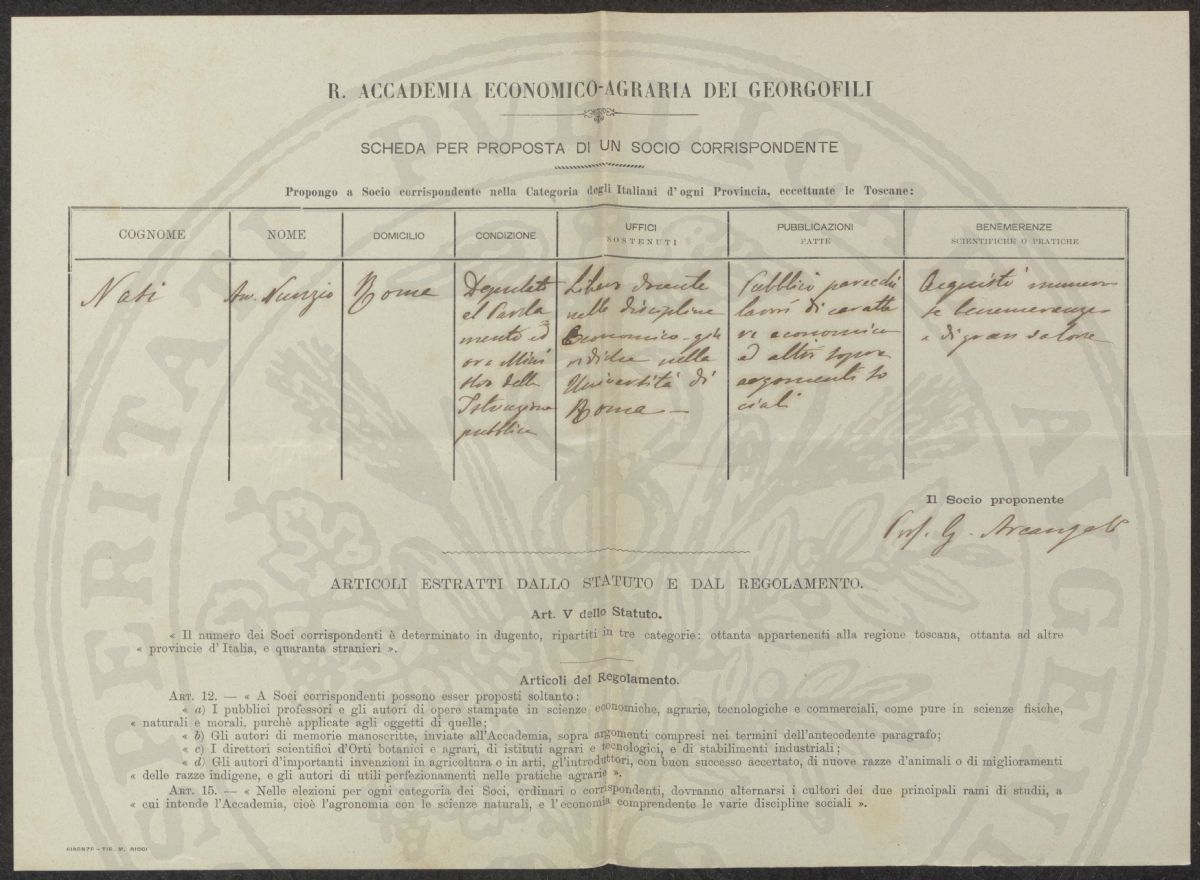 R. ACCADEMIA ECONOMICO-AGRARIA DEI GEORGOFILI
SCHEDA PER PROPOSTA DI UN SOCIO CORRISPONDENTE
Propongo a Socio corrispondente nella Categoria degli Italiani d'ogni Provincia, eccettuate le Toscane:
COGNOME
NOME
DOMICILIO
CONDIZIONE
UFFICI
SOSTENUTI
PUBBLICAZIONI
FATTE
BENEMERENZE
SCIENTIFICHE O PRATICHE
Nasi
Nunzio
Roma
Deputato
al Parla
mento ed
ora Mini
stro della
Istruzione
pubblica
Libero docente
nelle discipline
Economico-giu
ridiche nella
Università di
Roma —
Pubblicò parecchi
lavori di caratte
re economico
ed altri sopra
argomenti so
ciali
Acquistò numero
se benemerenze
e di gran valore
Il Socio proponente
Prof. G. Arcangeli
ARTICOLI ESTRATTI DALLO STATUTO E DAL REGOLAMENTO.
Art. V dello Statuto.
« Il numero dei Soci corrispondenti è determinato in dugento, ripartiti in tre categorie: ottanta appartenenti alla regione toscana, ottanta ad altre
« provincie d'Italia, e quaranta stranieri ».
Articoli del Regolamento.
ART. 12. — « A Soci corrispondenti possono esser proposti soltanto:
« a) I pubblici professori e gli autori di opere stampate in scienze economiche, agrarie, tecnologiche e commerciali, come pure in scienze fisiche,
« naturali e morali, purchè applicate agli oggetti di quelle;
« b) Gli autori di memorie manoscritte, inviate all'Accademia, sopra argomenti compresi nei termini dell'antecedente paragrafo;
« c) I direttori scientifici d'Orti botanici e agrari, di istituti agrari e tecnologici, e di stabilimenti industriali;
« d) Gli autori d'importanti invenzioni in agricoltura o in arti, gl'introduttori, con buon successo accertato, di nuove razze d'animali o di miglioramenti
« delle razze indigene, e gli autori di utili perfezionamenti nelle pratiche agrarie ».
ART. 15. — « Nelle elezioni per ogni categoria dei Soci, ordinari o corrispondenti, dovranno alternarsi i cultori dei due principali rami di studii, a
« cui intende l'Accademia, cioè l'agronomia con le scienze naturali, e l'economia comprendente le varie discipline sociali ».
FIRENZE - TIP. M. RICCI